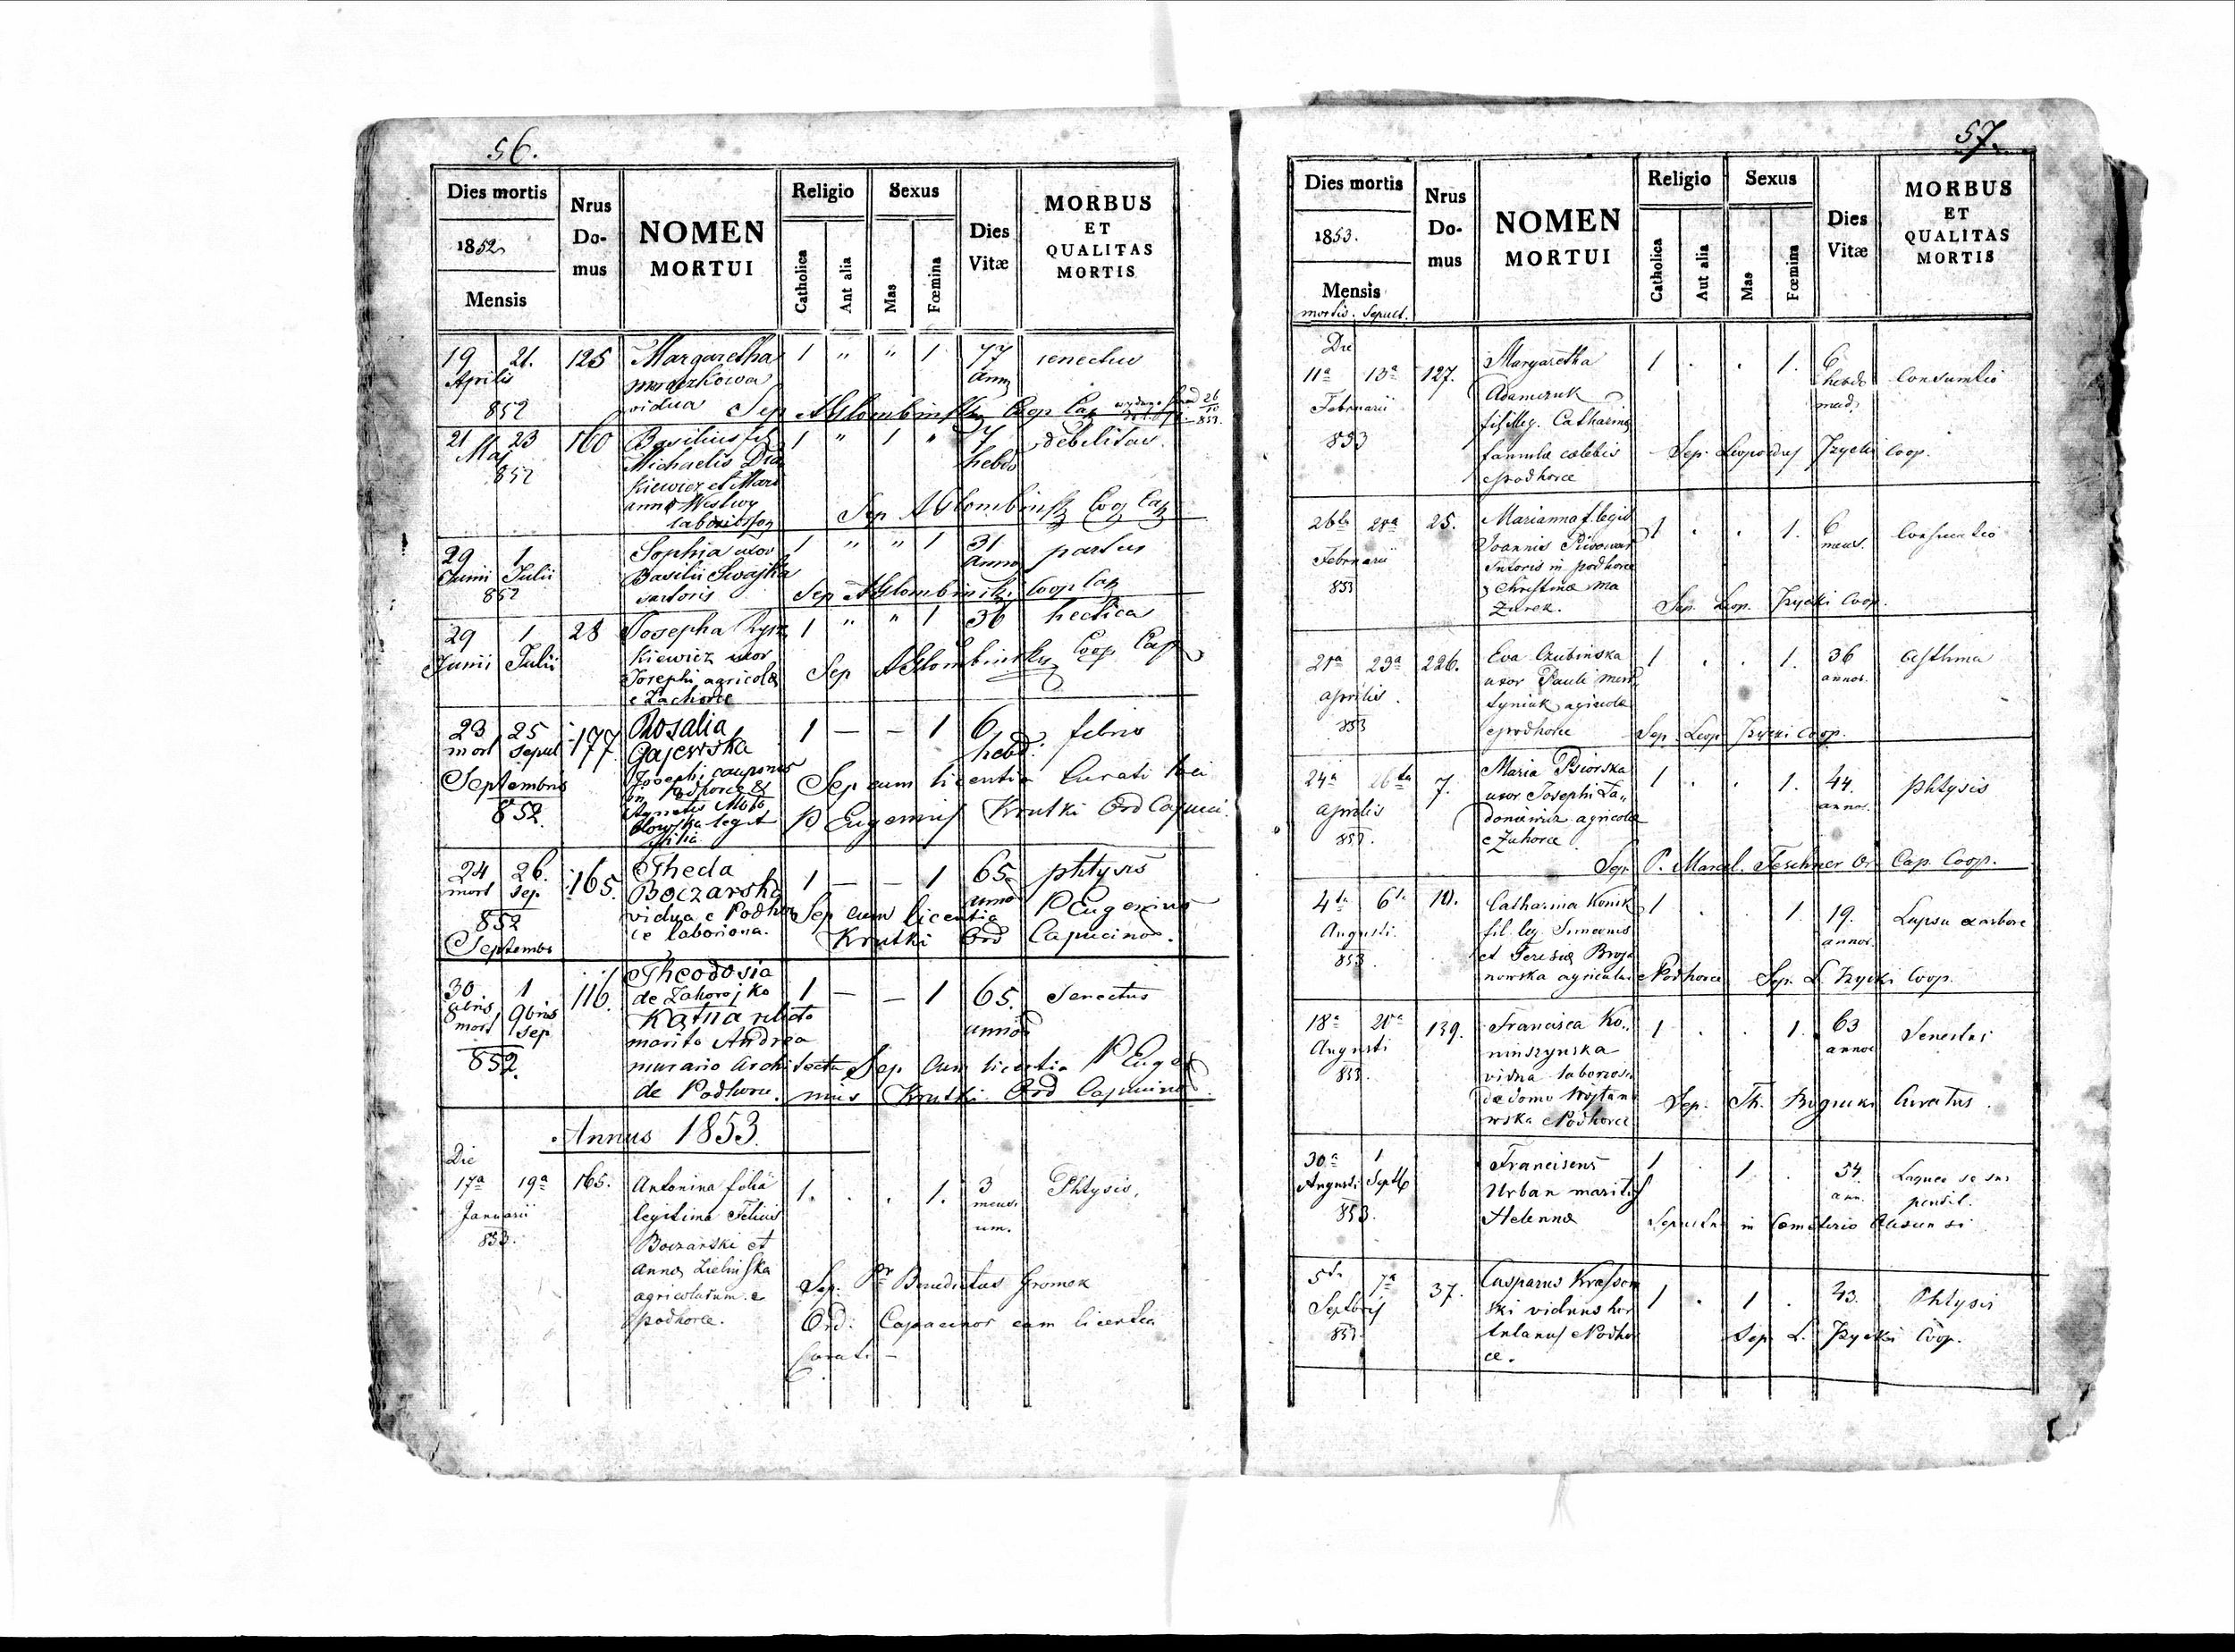 56.
Dies mortis
1852
Mensis
Nrus Domus
NOMEN MORTUI
Religio
Catholica
Aut alia
Sexus
Mas
Fœmina
Dies Vitæ
MORBUS ET QUALITAS MORTIS
19 21. 125 Margaretha 1 " " 1 77 senectus
Aprilis anno
852 vidua Sep Coop Cap
21 23 160 Basilius 1 " 1 " 7 debilitas.
Maj Michaelis hebd
852 kiewicz et Mari
anna
Sep Coop Cap
29 1 Sophia uxor 1 " " 1 31 partus
Junii Julii Basilii Swajka anno
852 sartoris Sep Coop Cap
29 1 28 Josepha 1 " " 1 36 hectica
Junii Julii kiewicz uxor
Josephi agricola Sep Coop Cap
e Zachorce
23 25 177 Rosalia 1 — — 1 6 febris
mort sepul Gajewska hebd.
Septembris Josephi cauponis Sep cum licentia Curati loci
in Podhorce et
852. Agnetis P Eugenius Krutki Ord Capuci.
legit
filia
24 26. 165. Theda 1 — — 1 65 phtysis
mort sep. Boczarska anno
852 vidua e Podhor Sep cum licentia P Eugenius
Septembr ce laboriosa. Krutki Ord Capucinor.
30 1 116. Theodosia 1 — — 1 65. Senectus
8bris 9bris de Zahorojko
mort sep relicta annor
852. marito Andrea
murario architecta Sep cum licentia P Euge
de Podhorce. nius Krutki Ord Capucinor.
Annus 1853.
Die
17a 19a 165. Antonina filia 1. . . 1. 3 Phtysis.
Januarii legitima Felicis mensi
853. Boczarski et um.
Anna Zielinska
agricolarum e Sep. Pr Benedictus Gromek
podhorce. Ord: Capucinor cum licentia
Curati —
57.
Dies mortis
1853.
Mensis
mortis. Sepult.
Nrus Domus
NOMEN MORTUI
Religio
Catholica
Aut alia
Sexus
Mas
Fœmina
Dies Vitæ
MORBUS ET QUALITAS MORTIS
Die
11a 13a 127. Margaretha 1 . . 1. 6 Consumtio
Februarii Adamczuk hebdo
mad.
853 fil illeg. Catharina
famula cælebis Sep. Leopoldus Coop.
e podhorce
26ta 28a 25. Marianna f. legit 1 . . 1. 6
Februarii Joannis Piwowar mens.
853 sutoris in podhorce
& Christina Ma
zurek. Sep. Leop. Coop.
21a 23a 226. Eva Czubinska 1 . . 1. 36 Asthma
Aprilis uxor Pauli annor.
853 agricola
e podhorce Sep. Leop. Coop.
24a 26ta 7. Maria Psiorska 1 . . 1. 44. phtysis
Aprilis uxor Josephi annor.
853. agricola
e Zuhorce
Sep. P. Marcel. Teschner Or. Cap. Coop.
4ta 6ta 10. Catharina Konik 1 . . 1. 19. Lapsu ex arbore
Augusti. fil. leg. Simeonis annor.
853. et Teresia Broja
nowska agricola Podhorce Sep. L. Coop.
18a 20a 139. Francisca Ko 1 . . 1. 63 Senectus
Augusti ninszynska annor
853. vidua laboriosa
de domo Wojtano
wska e Podhorce Sep. Th. Curatus.
30a 1 Franciscus 1 . 1 . 54. Laqueo se sus
Augusti Septb Urban maritus ann. pendit.
853. Helenna Sepultus in Cemeterio
5ta 7a 37. Casparus 1 . 1 . 43. Phtysis
Septbris ski viduus hor
853. tulanus e Podhor Sep. L. Coop.
ce.